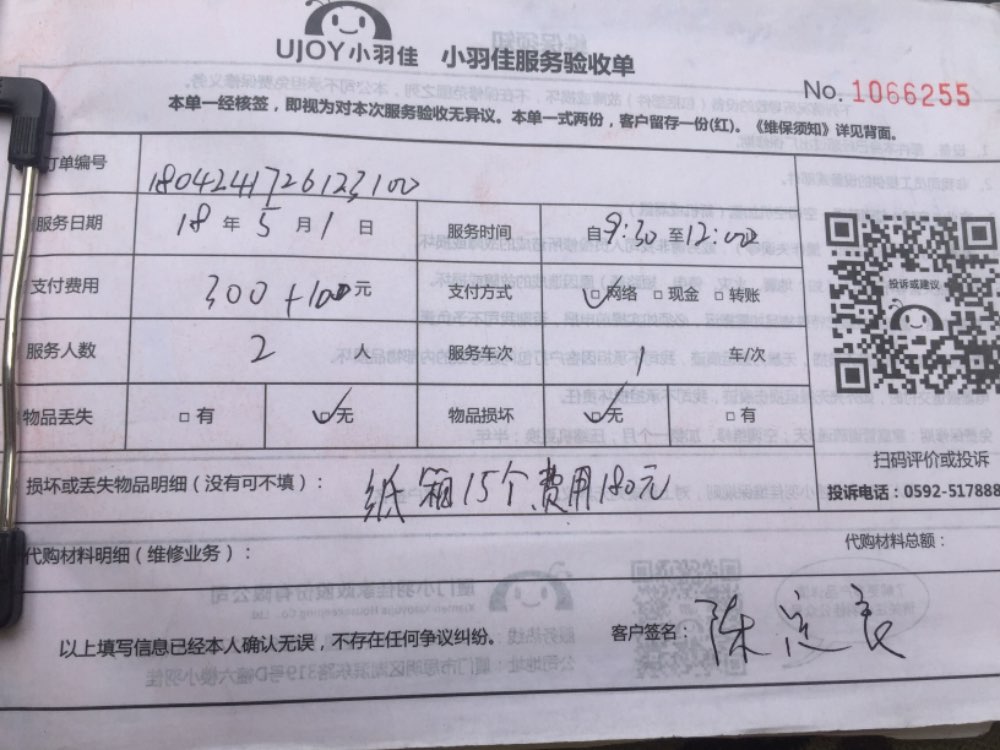 UJOY小羽佳 小羽佳服务验收单
No. 1066255
本单一经核签，即视为对本次服务验收无异议。本单一式两份，客户留存一份(红)。《维保须知》详见背面。
订单编号 1804241726123100
服务日期 18 年 5 月 1 日 服务时间 自9:30 至12:00
支付费用 300+100元 支付方式 ☑网络 □现金 □转账
投诉或建议
服务人数 2 人 服务车次 1 车/次
物品丢失 □有 ☑无 物品损坏 ☑无 □有
扫码评价或投诉
损坏或丢失物品明细（没有可不填）： 纸箱15个费用180元
投诉电话：0592-517888
代购材料明细（维修业务）：
代购材料总额：
以上填写信息已经本人确认无误，不存在任何争议纠纷。 客户签名：陈